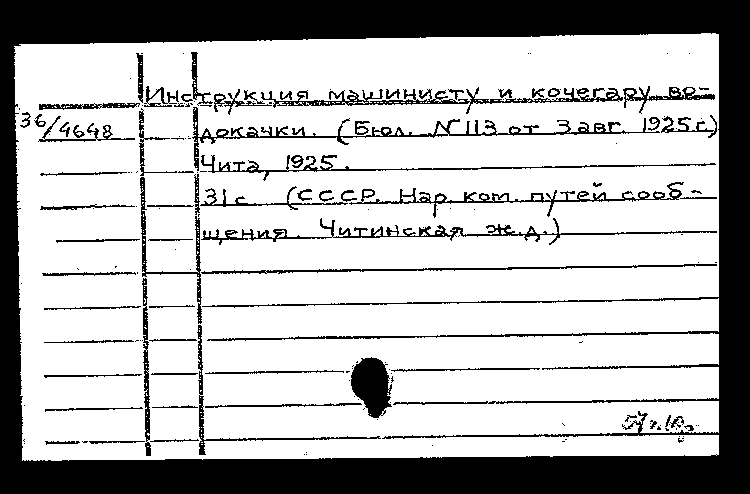 Инструкция машинисту и кочегару во-
36/4648 докачки. (Бюл. № 113 от 3 авг. 1925 г.)
Чита, 1925.
31 с. (СССР. Нар. ком. путей сооб-
щения. Читинская ж.д.)